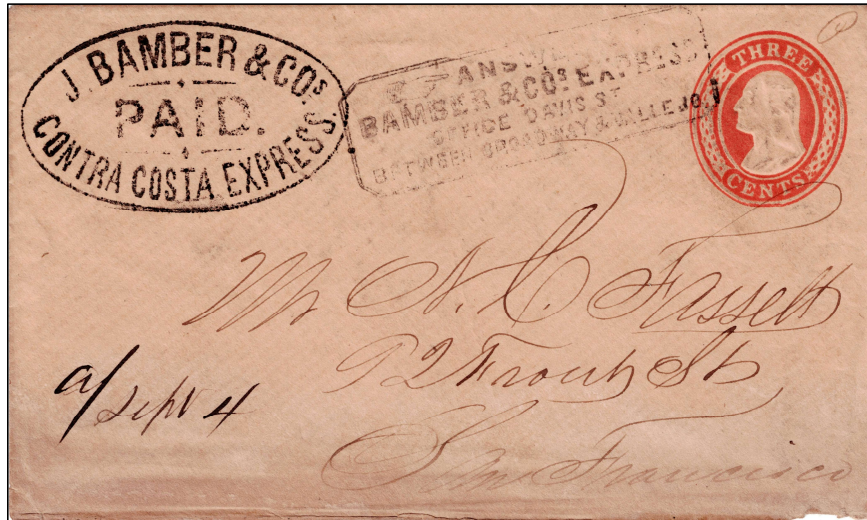 J. BAMBER & COS.
PAID.
CONTRA COSTA EXPRESS.
ANSWER BY
BAMBER & COS EXPRESS
OFFICE DAVIS ST
BETWEEN BROADWAY & VALLEJO.
THREE
CENTS
Mr N. C. Fassett
92 Front St
San Francisco
a/ Sept 4